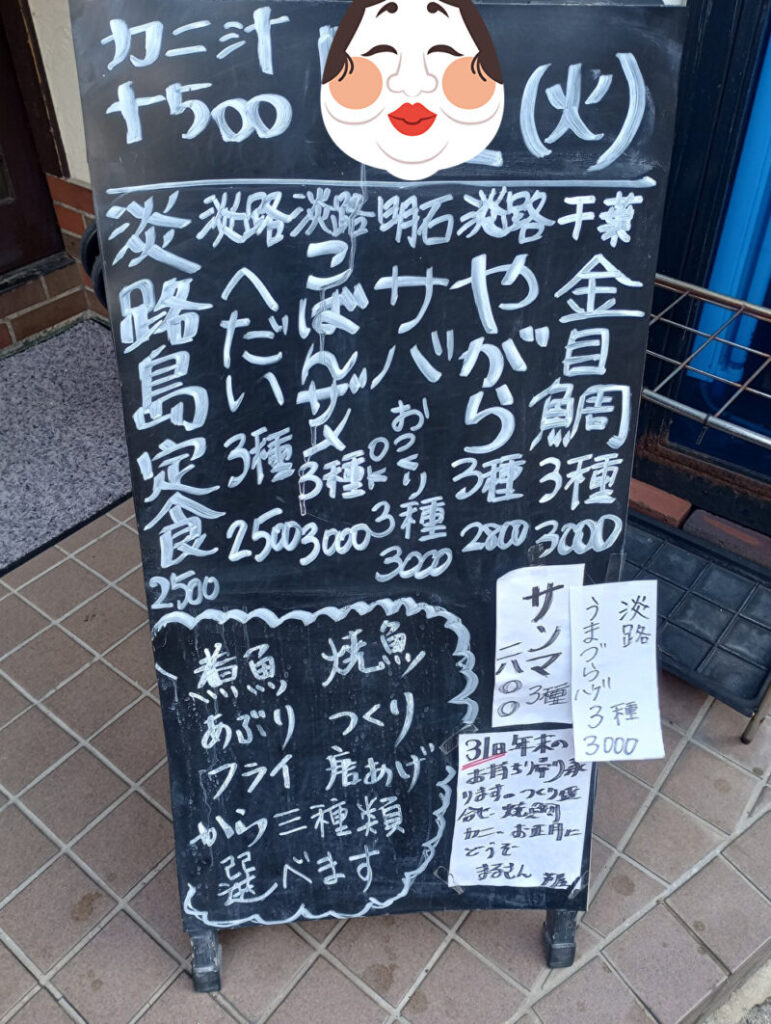 カニ汁
+500
(火)
千葉
金目鯛
3種
3000
淡路
やがら
3種
2800
明石
サバ
おつくり
OK
3種
3000
淡路
こばんザメ
3種
3000
淡路
へだい
3種
2500
淡路島定食
2500
煮魚 焼魚
あぶり つくり
フライ 唐あげ
から三種類
選べます
サンマ
3種
二八〇〇
淡路
うまづらハゲ
3種
3000
31日年末の
お持ち帰り承
ります。つくり盛
合せ 焼
カニ お正月に
どうぞ
まるさん